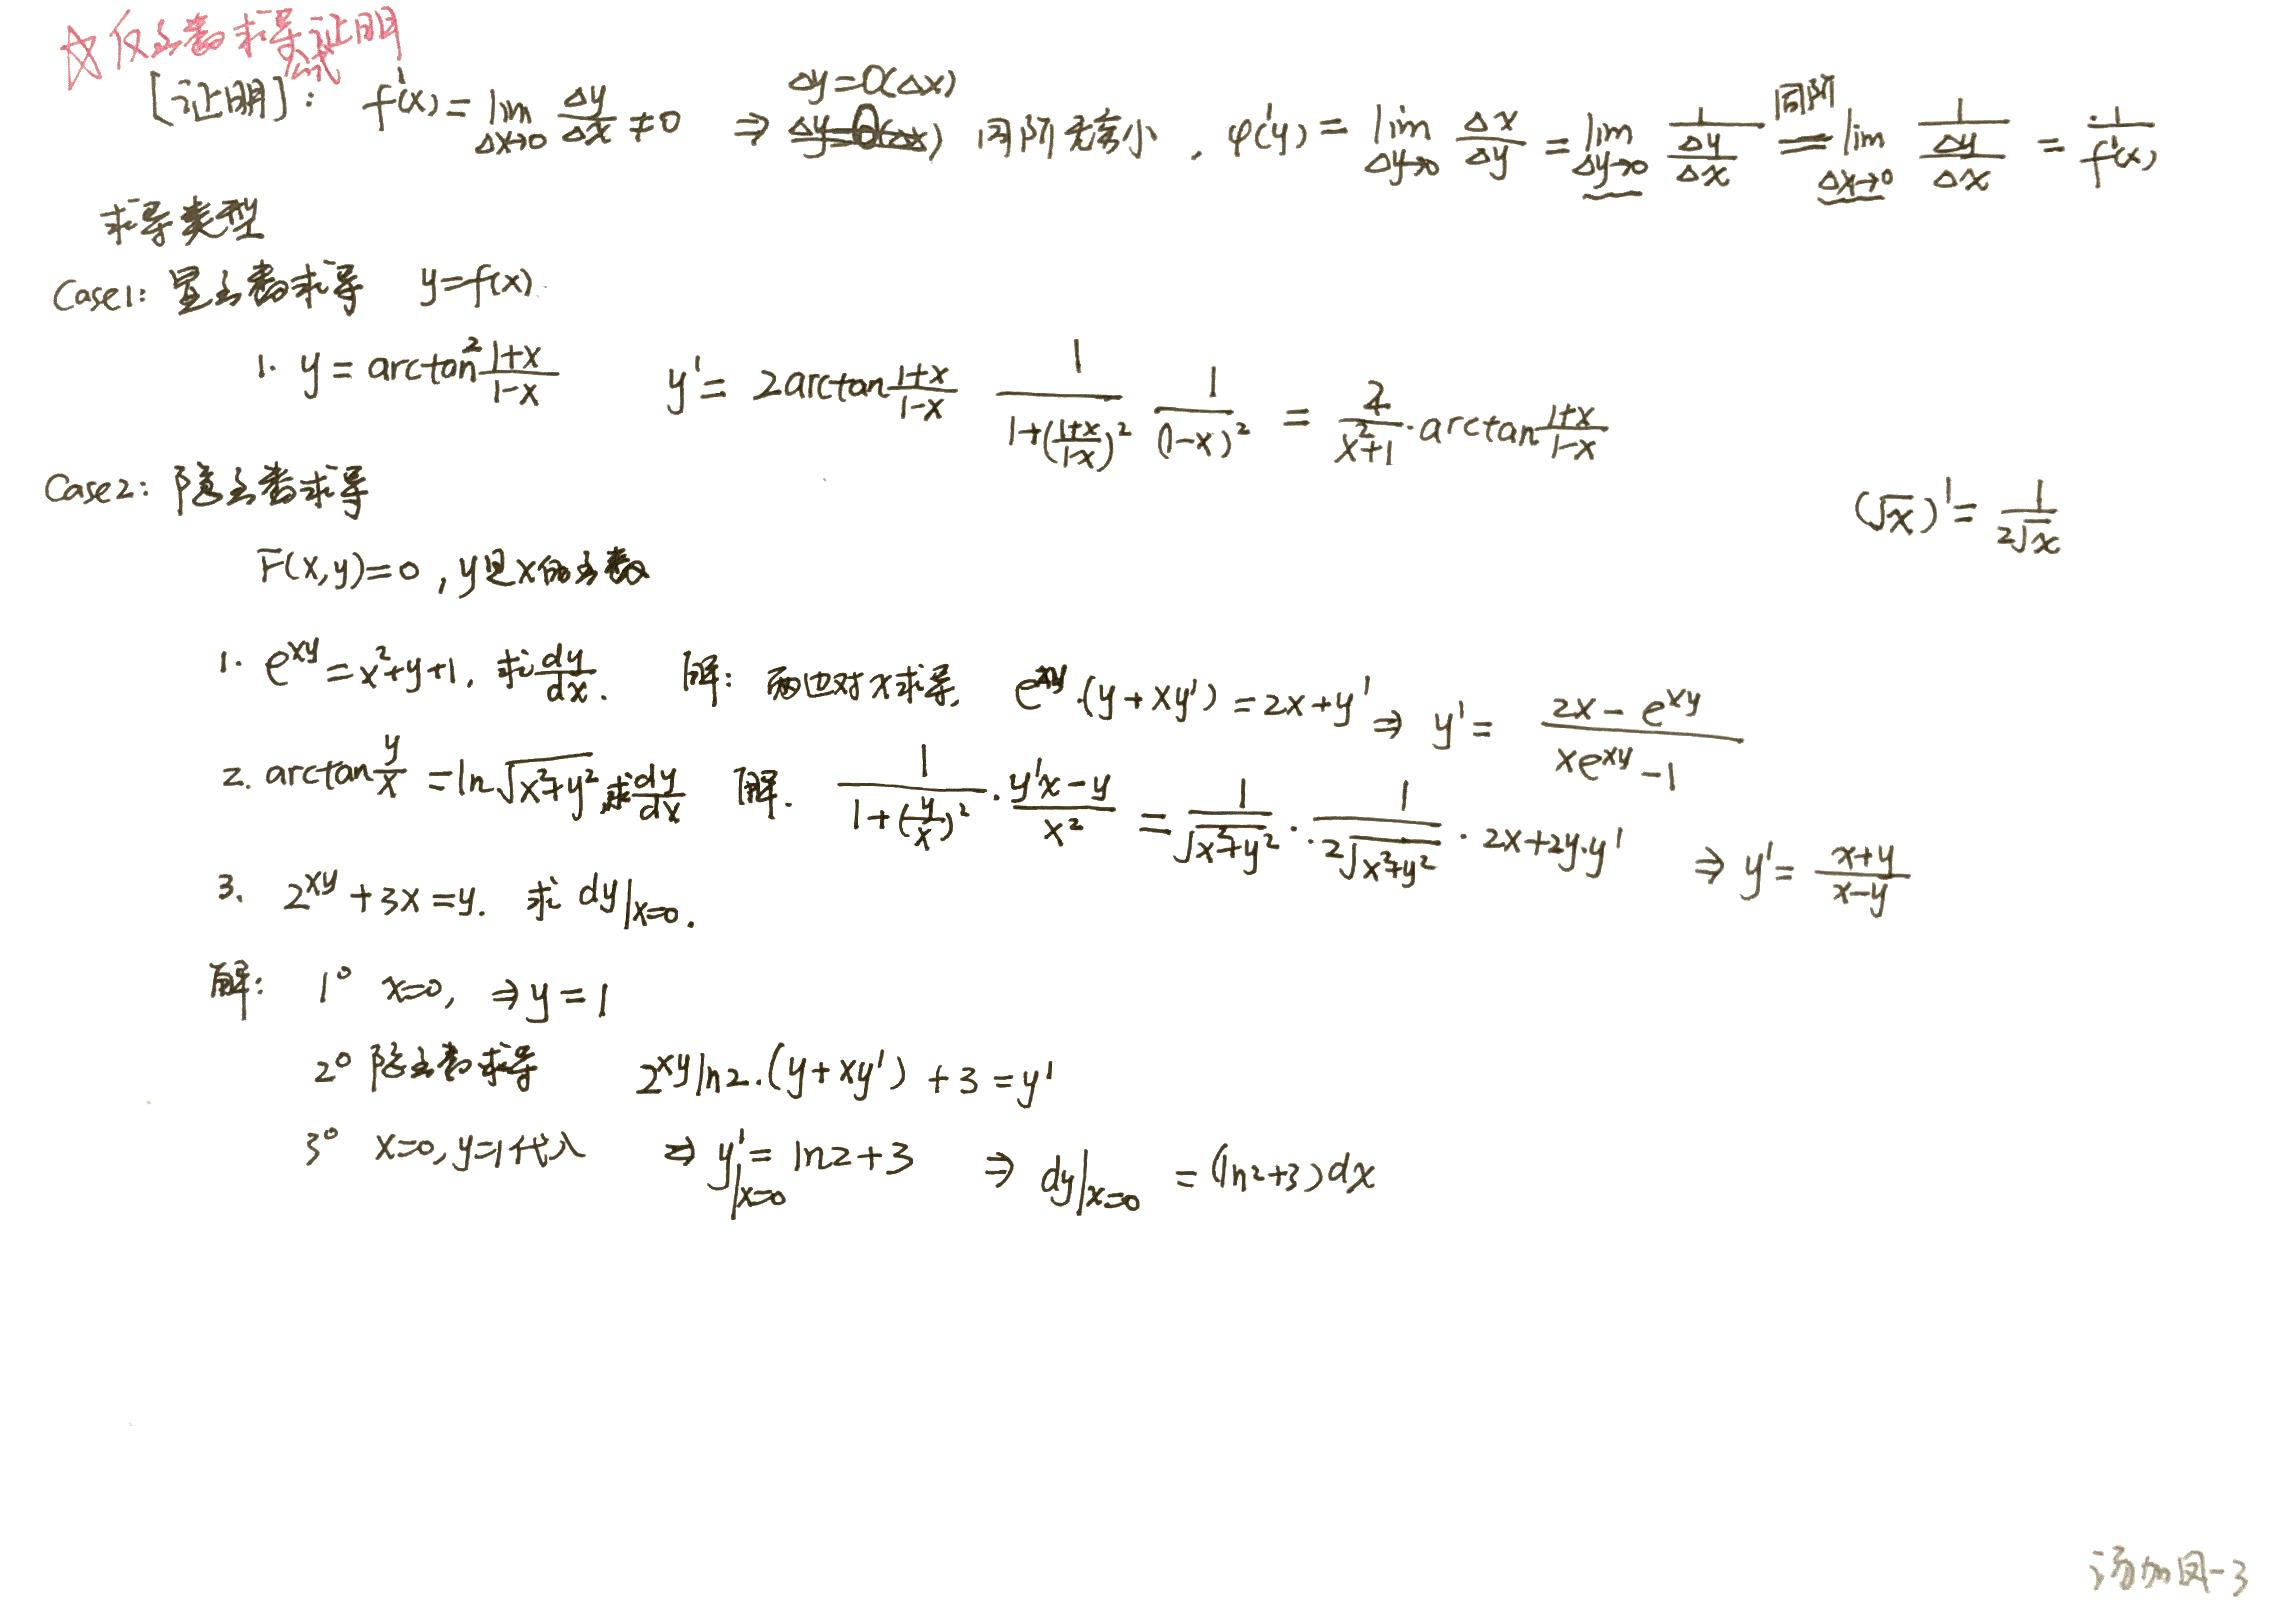 ☆反函数求导证明
公式
[证明]: f'(x)=lim_{Δx→0} Δy/Δx ≠0 ⇒ Δy=O(Δx) 同阶无穷小, φ'(y)=lim_{Δy→0} Δx/Δy = lim_{Δy→0} 1/(Δy/Δx) =(同阶)= lim_{Δx→0} 1/(Δy/Δx) = 1/f'(x)
求导类型
Case1: 显函数求导 y=f(x)
1. y=arctan² (1+x)/(1-x) y'= 2arctan (1+x)/(1-x) 1/(1+((1+x)/(1-x))²) 1/(1-x)² = 2/(x²+1)·arctan (1+x)/(1-x)
Case2: 隐函数求导
(√x)'= 1/(2√x)
F(x,y)=0, y是x的函数
1. e^{xy}=x²+y+1, 求 dy/dx. 解: 两边对x求导, e^{xy}·(y+xy')=2x+y' ⇒ y'= (2x-e^{xy})/(xe^{xy}-1)
2. arctan y/x =ln√(x²+y²), 求 dy/dx 解. 1/(1+(y/x)²)·(y'x-y)/x² = 1/√(x²+y²)·1/(2√(x²+y²))·2x+2y·y' ⇒ y'= (x+y)/(x-y)
3. 2^{xy}+3x=y. 求 dy|_{x=0}.
解: 1° x=0, ⇒y=1
2° 隐函数求导 2^{xy}ln2·(y+xy')+3=y'
3° x=0,y=1代入 ⇒ y'|_{x=0}=ln2+3 ⇒ dy|_{x=0} =(ln2+3)dx
汤加凤-3